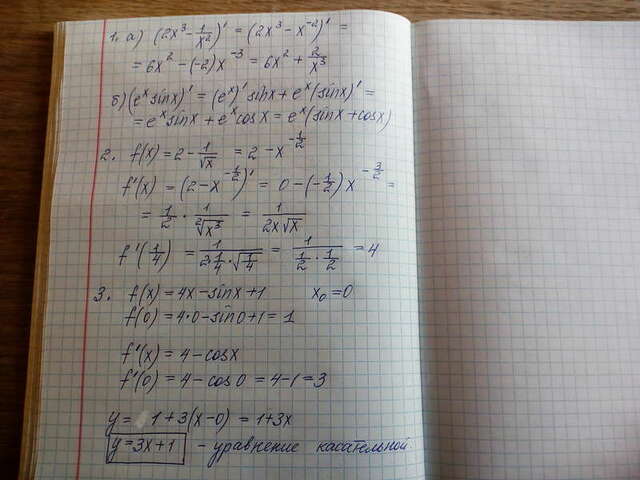 1. а) (2x³ - 1/x²)' = (2x³ - x⁻²)' =
= 6x² - (-2)x⁻³ = 6x² + 2/x³
б) (eˣ sinx)' = (eˣ)' sinx + eˣ(sinx)' =
= eˣ sinx + eˣ cosx = eˣ(sinx + cosx)
2. f(x) = 2 - 1/√x = 2 - x^(-1/2)
f'(x) = (2 - x^(-1/2))' = 0 - (-1/2) x^(-3/2) =
= 1/2 · 1/²√x³ = 1/(2x√x)
f'(1/4) = 1/(2·1/4·√(1/4)) = 1/(1/2 · 1/2) = 4
3. f(x) = 4x - sinx + 1 x₀ = 0
f(0) = 4·0 - sin0 + 1 = 1
f'(x) = 4 - cosx
f'(0) = 4 - cos0 = 4 - 1 = 3
y = 1 + 3(x - 0) = 1 + 3x
y = 3x + 1 - уравнение касательной.